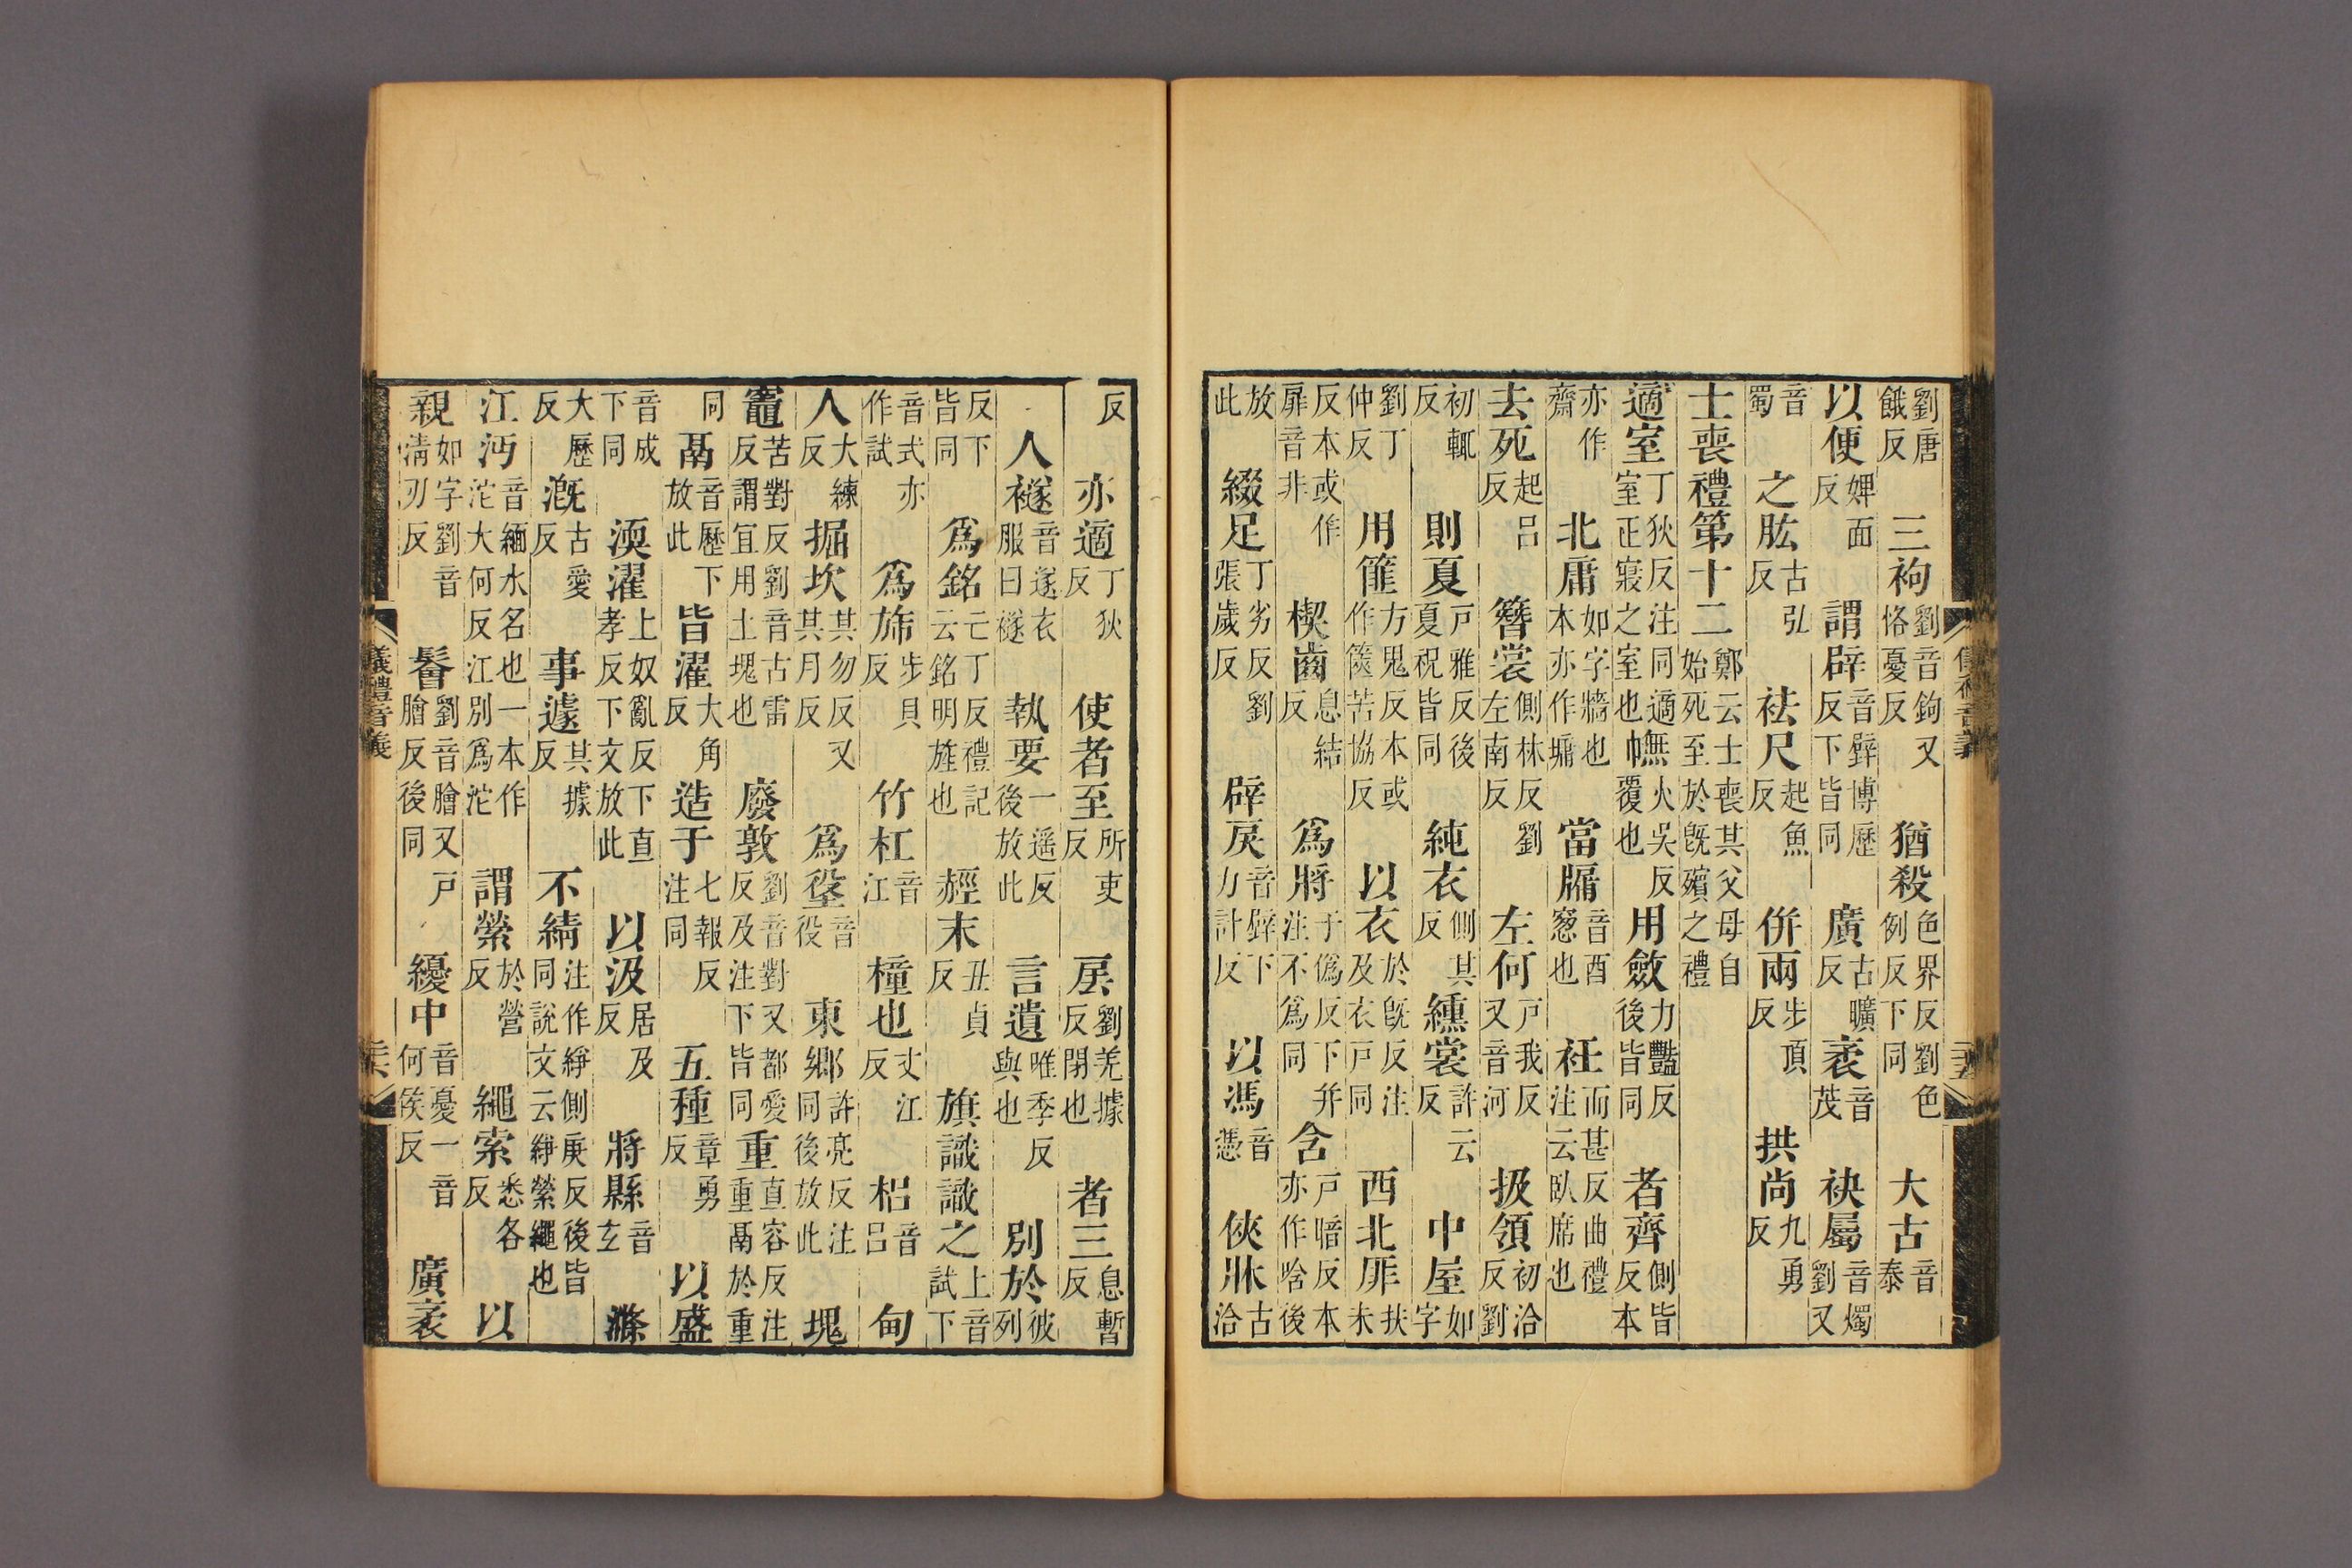 儀禮音義
劉唐餓反三袧劉音鉤又恪憂反猶殺色界反劉色例反下同大古音泰
以便婢面反謂辟音擘博歷反下皆同廣古曠反袤音茂袂屬音燭劉又
音蜀之肱古弘反袪尺起魚反併兩步頂反拱尚九勇反
士喪禮第十二鄭云士喪其父母自始死至於旣殯之禮
適室丁狄反注同適室正寢之室也幠火吳反覆也用斂力豔反後皆同者齊側皆反本
亦作齋北庸如字牆也本亦作墉當牖音酉窻也衽而甚反曲禮注云臥席也
去死起呂反簪裳側林反劉左南反左何戶我反又音河扱領初洽反劉
初輒反則夏戶雅反後夏祝皆同純衣側其反纁裳許云反中屋如字
劉丁仲反用篚方鬼反本或作篋苦協反以衣於旣反注及衣戶同西北厞扶未
反本或作扉音非楔齒息結反爲將于僞反下并注不爲同含戶暗反本亦作唅後
放此綴足丁劣反劉張歲反辟戾音擘下力計反以馮音憑俠牀古洽
反亦適丁狄反使者至所吏反㞐劉羌據反閉也者三息暫
人襚音遂衣服曰襚執要一遥反後放此言遺唯季反與也別於彼列
反下皆同爲銘亡丁反禮記云銘明旌也䞓末丑貞反旗識識之上音試下
音式亦作試爲旆步貝反竹杠音江橦也丈江反梠音呂甸
人大練反掘坎其勿反又其月反爲垼音役東鄉許亮反注同後放此塊
竈苦對反劉音古雷反謂宜用土塊也廢敦劉音對又都愛反及注下皆同重直容反注重鬲於重
同鬲音歷下放此皆濯大角反造于七報反注同五種章勇反以盛
音成下同渜濯上奴亂反下直孝反下文放此以汲居及反將縣音玄滌
大歷反溉古愛反事遽其據反不綪注作䋫側庚反後皆同說文云䋫縈繩也
江沔音緬水名也一本作沱大何反江別爲沱謂縈於營反繩索悉各反以
親如字劉音淸刃反鬠劉音膾又戶膾反後同纋中音憂一音何侯反廣袤
儀禮音義